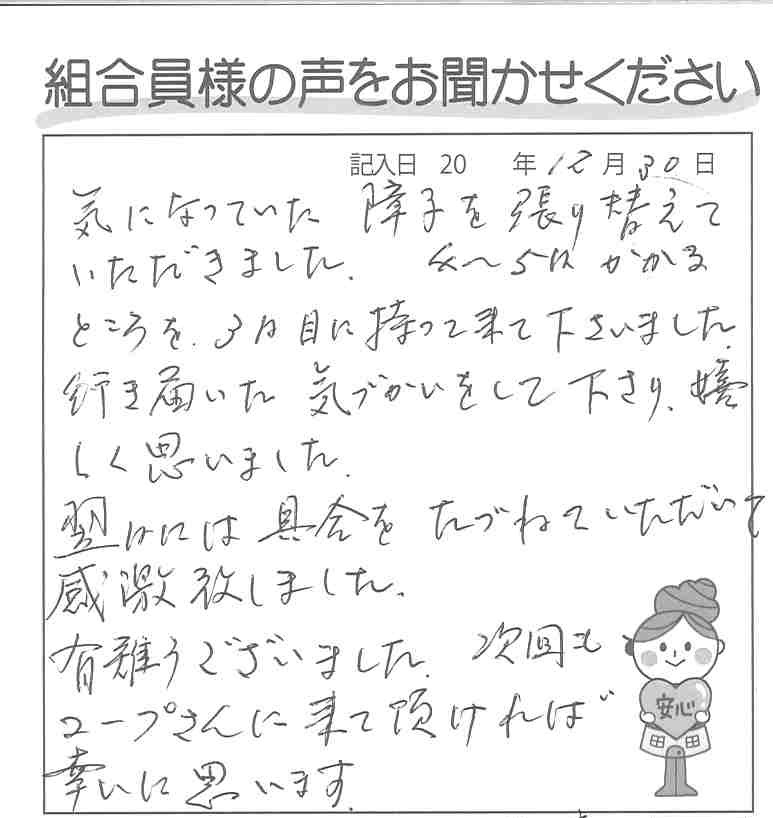 組合員様の声をお聞かせください
記入日 20 年 12 月 30 日
気になっていた 障子を張り替えて
いただきました. 4〜5日 かかる
ところを、3日目に持って来て下さいました.
行き届いた 気づかいをして下さり、嬉
しく思いました.
翌日には具合をたづねていただいて
感激致しました.
有難うございました. 次回も
コープさんに来て頂ければ
幸いに思います.
安心